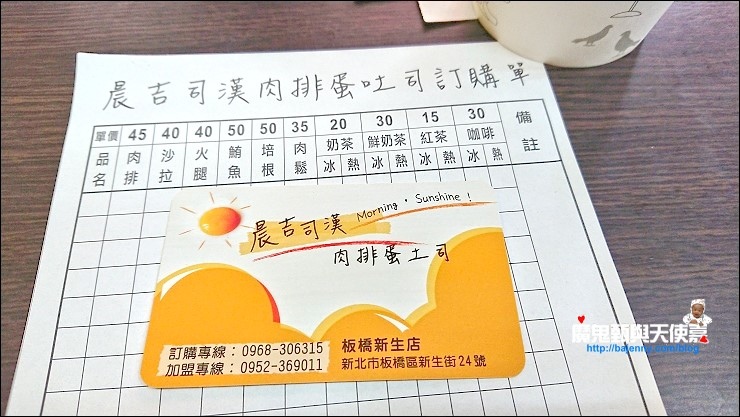 晨吉司漢肉排蛋吐司訂購單
單價 45 40 40 50 50 35 20 30 15 30 備註
品名 肉排 沙拉 火腿 鮪魚 培根 肉鬆 奶茶 鮮奶茶 紅茶 咖啡
冰 熱 冰 熱 冰 熱 冰 熱
晨吉司漢 Morning · Sunshine !
肉排蛋土司
訂購專線：0968-306315
加盟專線：0952-369011
板橋新生店
新北市板橋區新生街24號
魔鬼甄與天使嘉
http://bajenny.com/blog